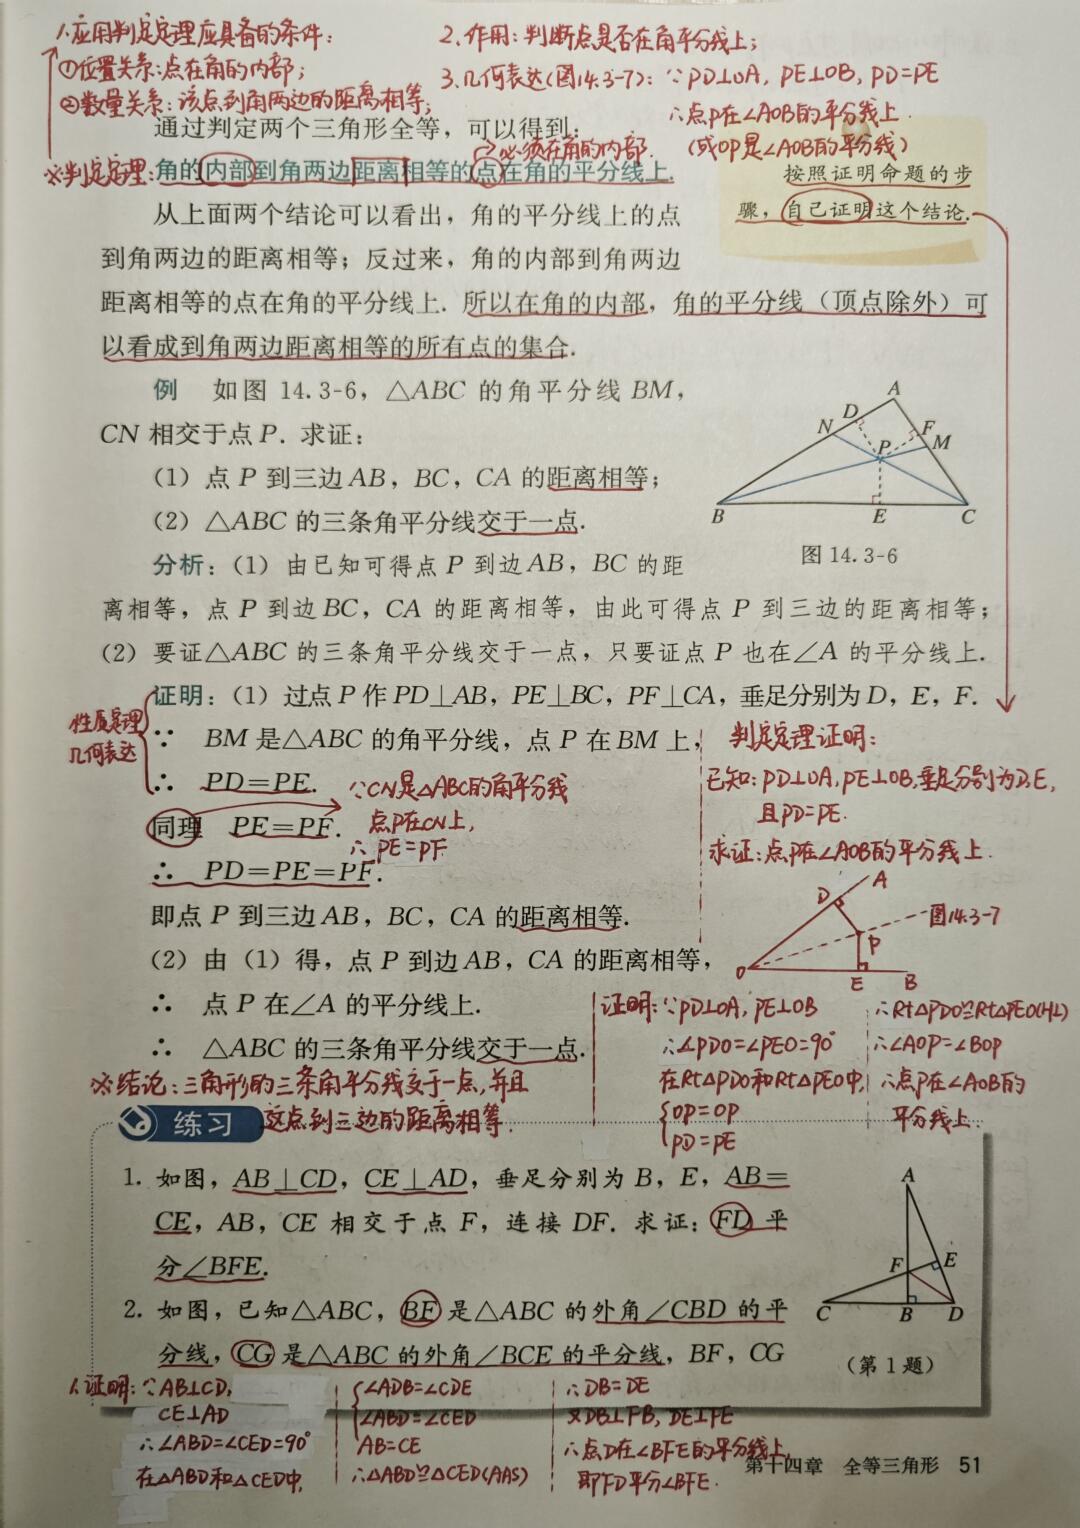 1.应用判定定理应具备的条件:
①位置关系:点在角的内部;
②数量关系:该点到角两边的距离相等;
2.作用:判断点是否在角平分线上;
3.几何表达(图14.3-7):∵PD⊥OA, PE⊥OB, PD=PE
∴点P在∠AOB的平分线上.
(或OP是∠AOB的平分线)
通过判定两个三角形全等，可以得到：
→必须在角的内部.
※判定定理:角的内部到角两边距离相等的点在角的平分线上.
按照证明命题的步
骤，自己证明这个结论.
从上面两个结论可以看出，角的平分线上的点
到角两边的距离相等；反过来，角的内部到角两边
距离相等的点在角的平分线上. 所以在角的内部，角的平分线（顶点除外）可
以看成到角两边距离相等的所有点的集合.
例 如图 14.3-6，△ABC 的角平分线 BM，
CN 相交于点 P. 求证：
（1）点 P 到三边 AB，BC，CA 的距离相等；
（2）△ABC 的三条角平分线交于一点.
A
D
N
F
M
P
B
E
C
图 14.3-6
分析：（1）由已知可得点 P 到边 AB，BC 的距
离相等，点 P 到边 BC，CA 的距离相等，由此可得点 P 到三边的距离相等；
（2）要证△ABC 的三条角平分线交于一点，只要证点 P 也在∠A 的平分线上.
证明：（1）过点 P 作 PD⊥AB，PE⊥BC，PF⊥CA，垂足分别为 D，E，F.
性质定理
几何表达
∵ BM 是△ABC 的角平分线，点 P 在 BM 上，
∴ PD=PE.
∵CN是△ABC的角平分线
点P在CN上,
∴PE=PF
同理 PE=PF.
∴ PD=PE=PF.
即点 P 到三边 AB，BC，CA 的距离相等.
（2）由（1）得，点 P 到边 AB，CA 的距离相等，
∴ 点 P 在∠A 的平分线上.
∴ △ABC 的三条角平分线交于一点.
※结论:三角形的三条角平分线交于一点,并且
这点到三边的距离相等.
判定定理证明:
已知:PD⊥OA,PE⊥OB,垂足分别为D,E,
且PD=PE.
求证:点P在∠AOB的平分线上.
A
D
图14.3-7
P
O
E
B
证明:∵PD⊥OA, PE⊥OB
∴∠PDO=∠PEO=90°
在Rt△PDO和Rt△PEO中,
OP=OP
PD=PE
∴Rt△PDO≌Rt△PEO(HL)
∴∠AOP=∠BOP
∴点P在∠AOB的
平分线上.
练习
1. 如图，AB⊥CD，CE⊥AD，垂足分别为 B，E，AB=
CE，AB，CE 相交于点 F，连接 DF. 求证：FD 平
分∠BFE.
2. 如图，已知△ABC，BF 是△ABC 的外角∠CBD 的平
分线，CG 是△ABC 的外角∠BCE 的平分线，BF，CG
A
F
E
C
B
D
（第 1 题）
1.证明:∵AB⊥CD,
CE⊥AD
∴∠ABD=∠CED=90°
在△ABD和△CED中,
∠ADB=∠CDE
∠ABD=∠CED
AB=CE
∴△ABD≌△CED(AAS)
∴DB=DE
又DB⊥FB, DE⊥FE
∴点D在∠BFE的平分线上,
即FD平分∠BFE.
第十四章 全等三角形 51